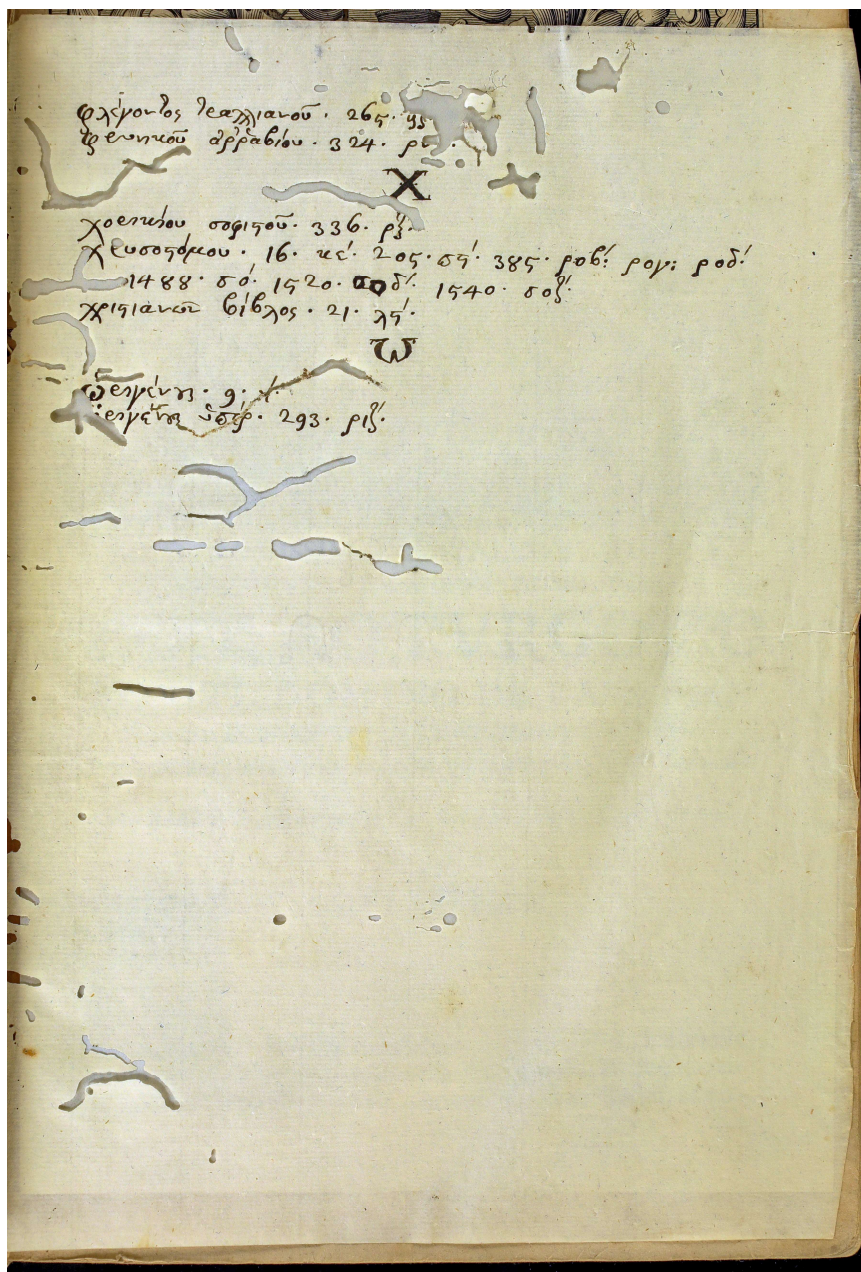 φλέγοντος τραλλιανοῦ · 265 ·
φρυνικοῦ ἀρραβίου · 324 ·
Χ
χορικίου σοφιστοῦ · 336 · ρξ΄.
χρυσοστόμου · 16 · κε΄ · 205 · στ΄ · 385 · ροβ΄: ρογ: ροδ΄.
1488 · σό · 1520 · δ΄. 1540 · σοζ΄.
χριστιανῶν βίβλος · 21 · λς΄.
Ω
ὠριγένους · 9 ·
ὠριγένους ὑπὲρ · 293 · ριζ΄.